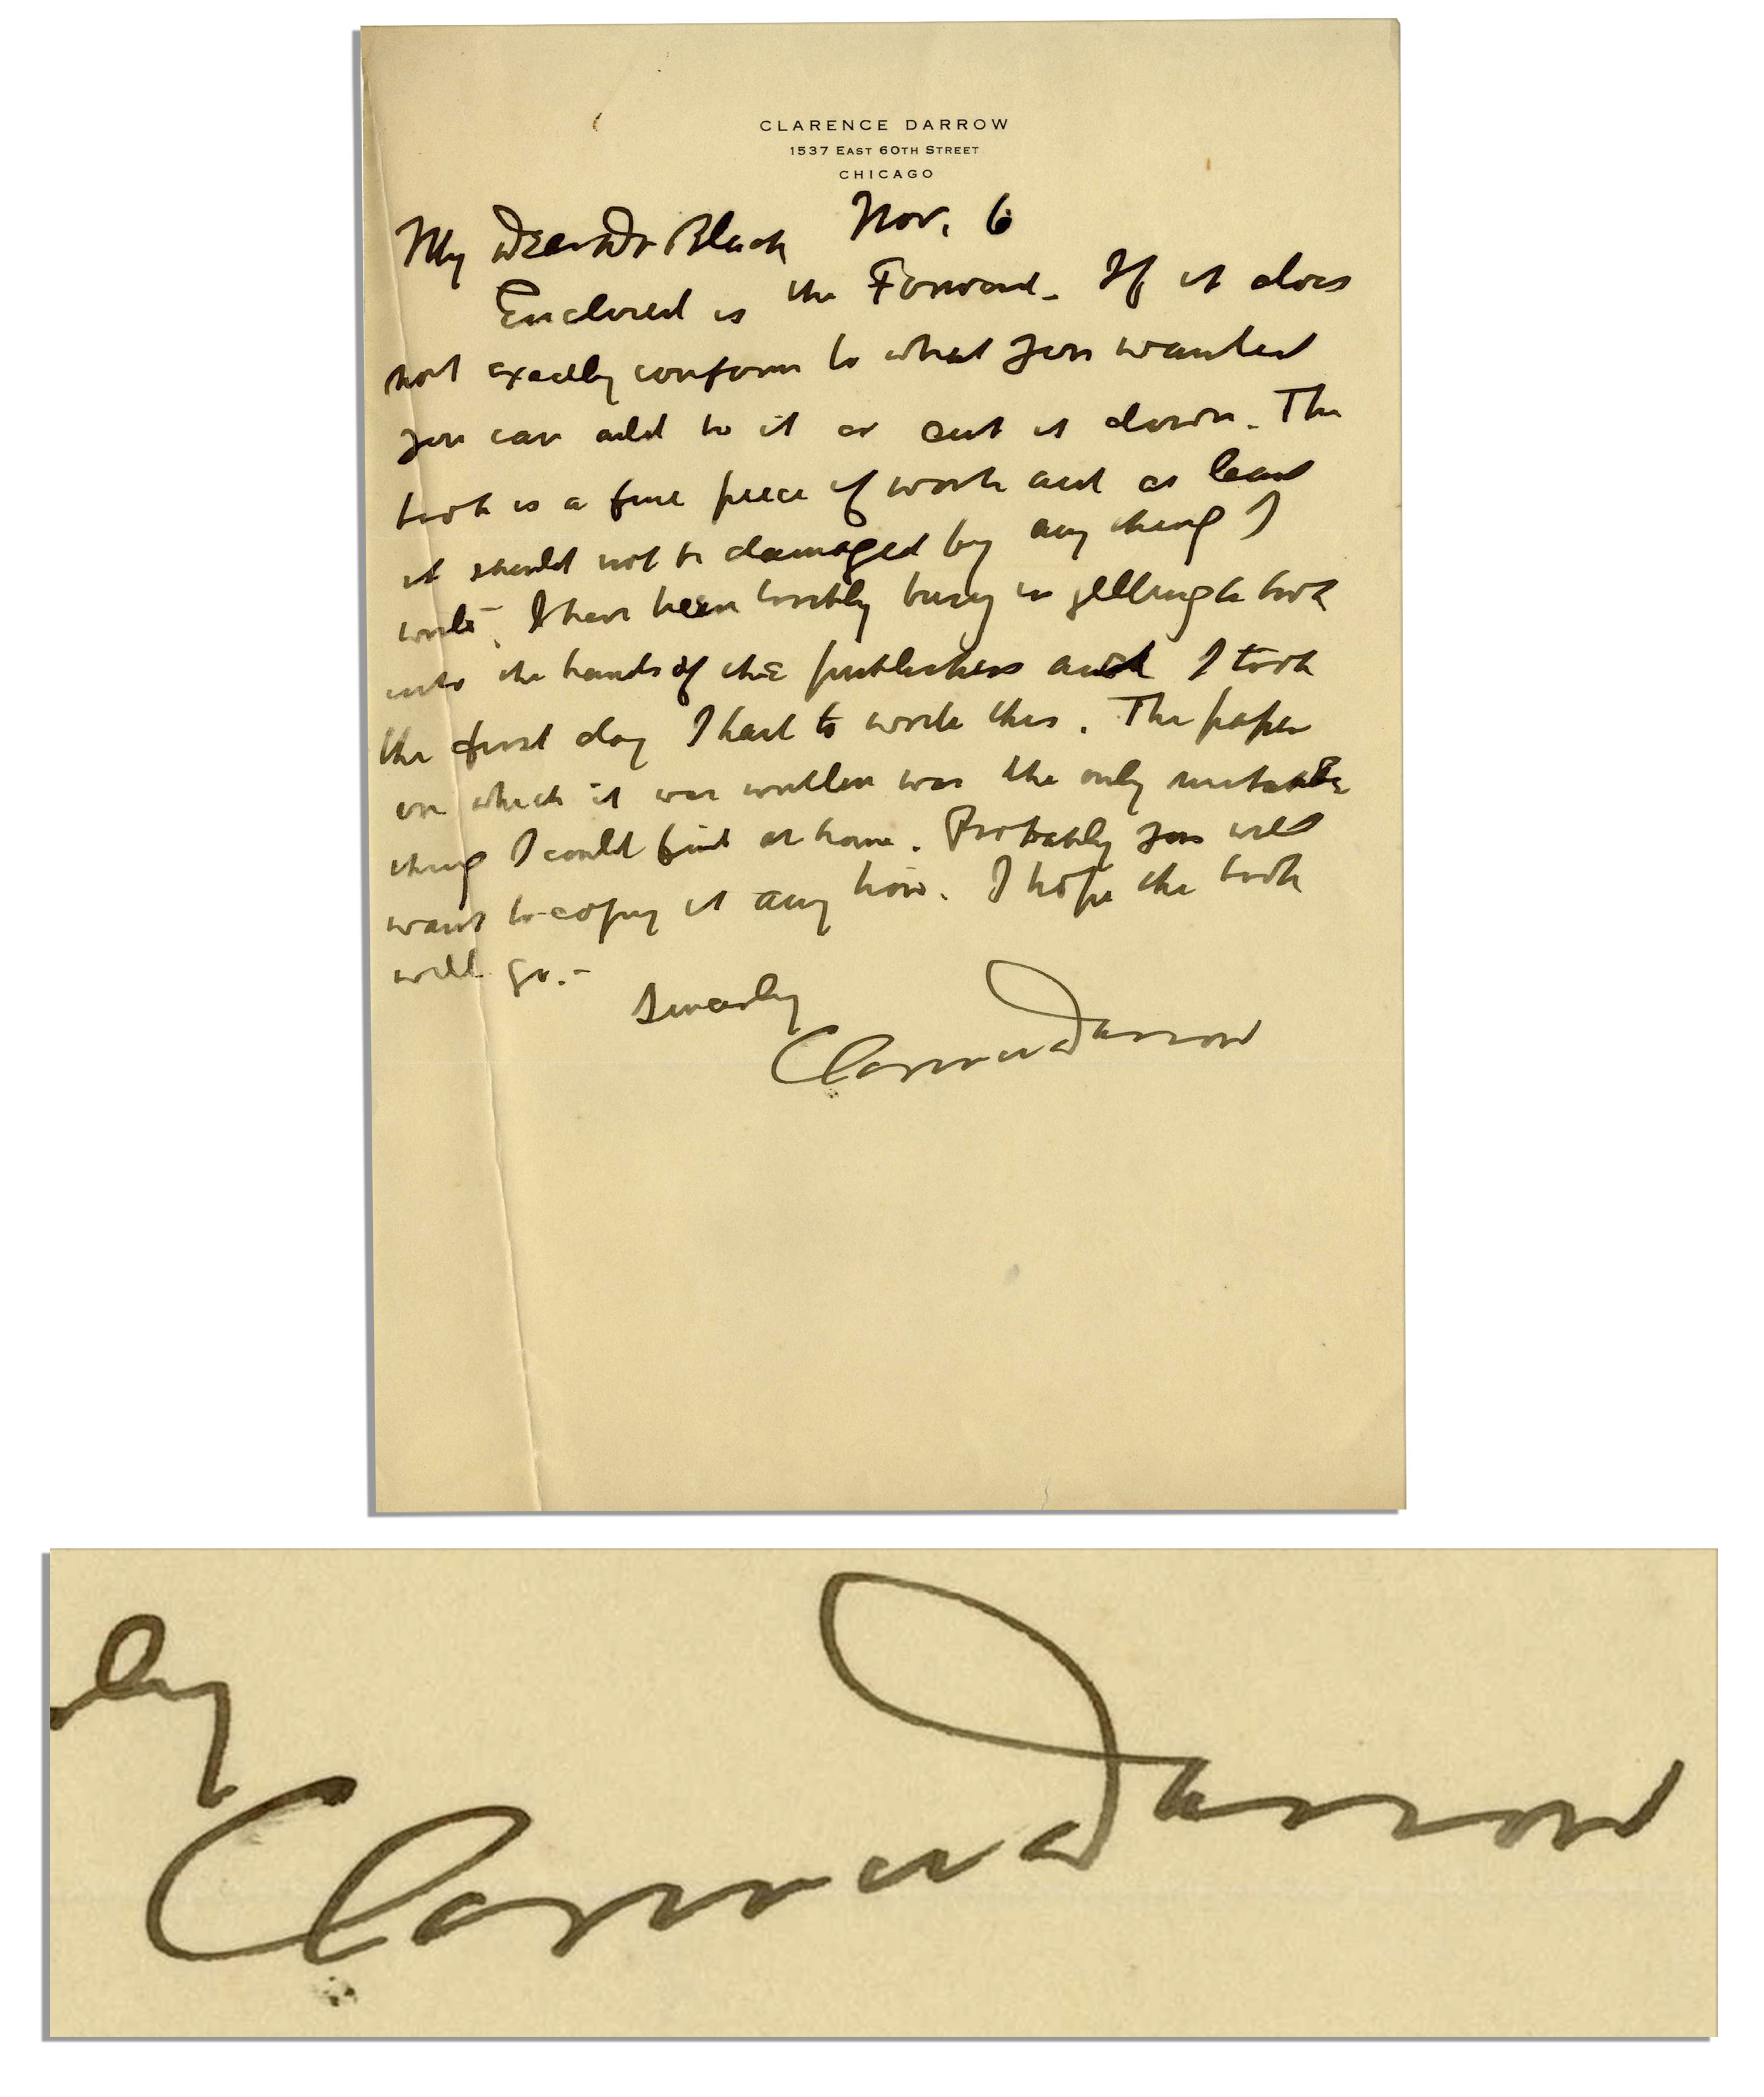 CLARENCE DARROW
1537 EAST 60TH STREET
CHICAGO
Nov. 6
My Dear Dr Black
Enclosed is the Forword. If it does
not exactly conform to what you wanted
you can add to it or cut it down. The
book is a fine piece of work and at least
it should not be damaged by any thing I
write. I have been terribly busy in getting a book
into the hands of the publishers and I took
the first day I had to write this. The paper
on which it was written was the only suitable
thing I could find at home. Probably you will
want to copy it any how. I hope the book
will go.-
Sincerely
Clarence Darrow
ly
Clarence Darrow